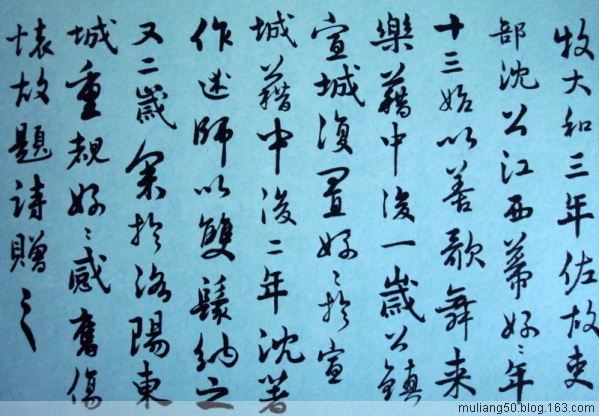 牧大和三年佐故吏
部沈公江西幕好〻年
十三始以善歌舞来
樂籍中後一歲公鎮
宣城復置好〻於宣
城籍中後二年沈著
作述師以雙鬟納之
又二歲余於洛陽東
城重覩好〻感舊傷
懐故題詩贈之
muliang50.blog.163.com